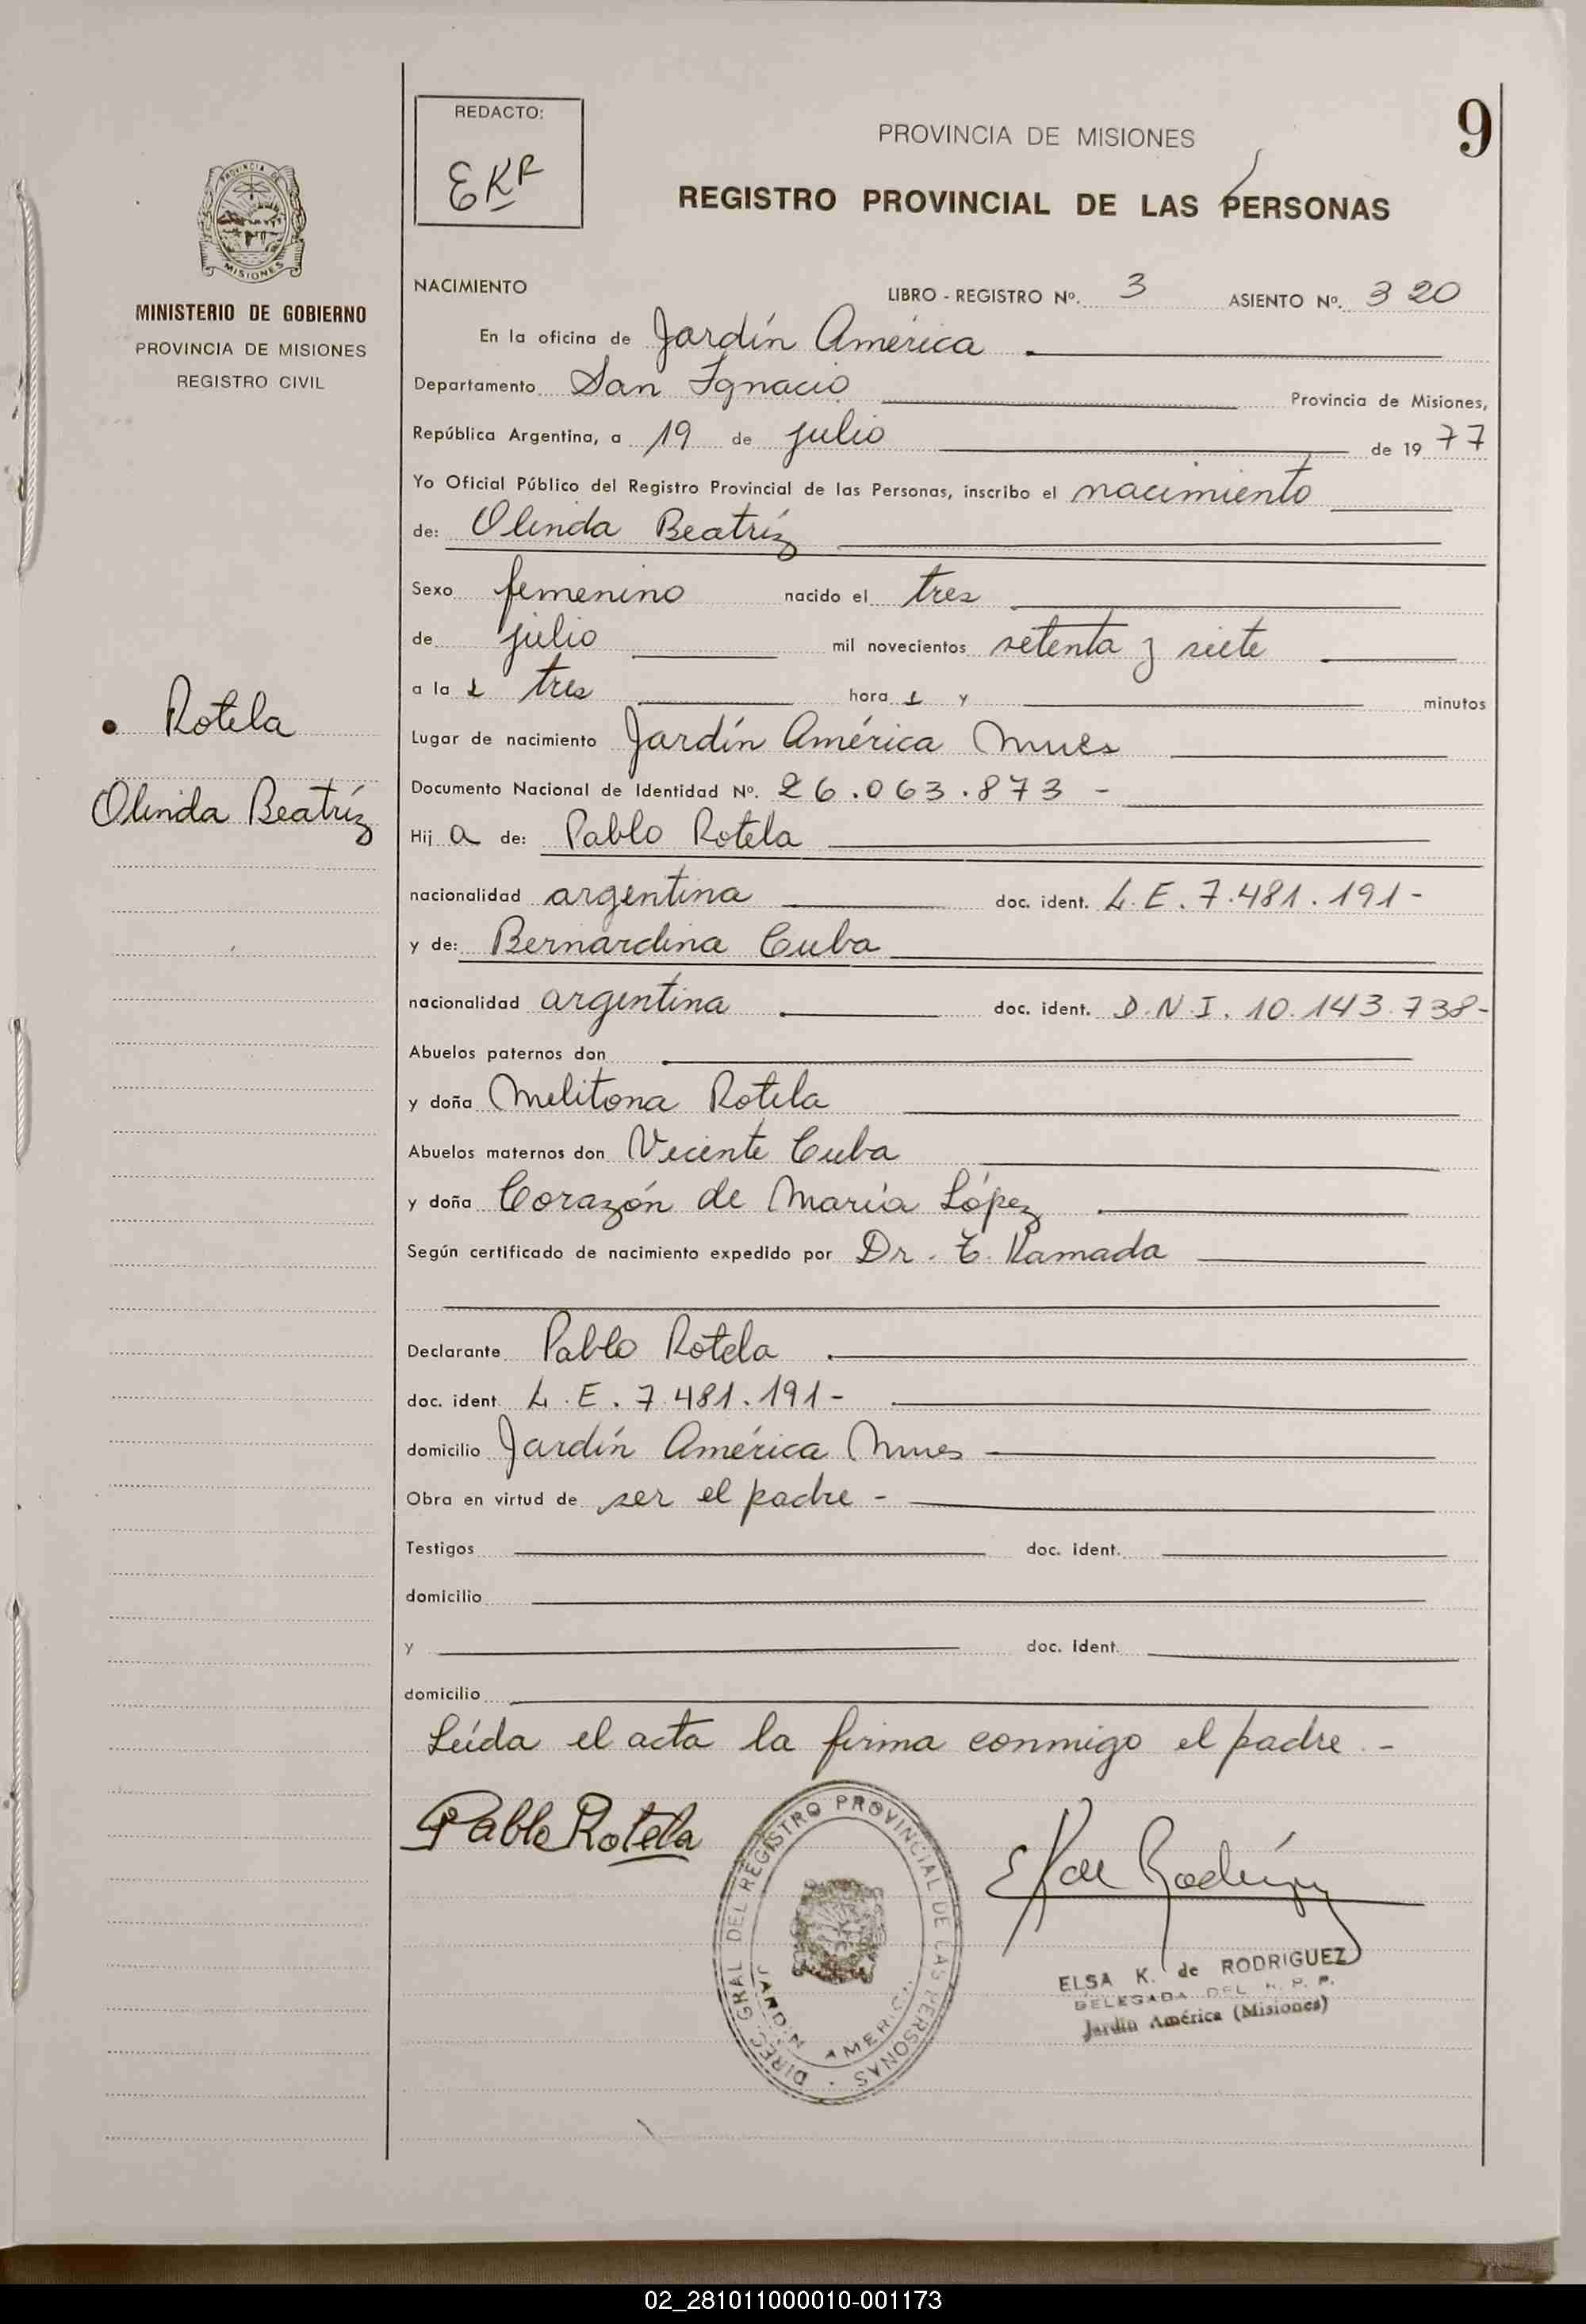 REDACTO:
EKR
9
PROVINCIA DE MISIONES
REGISTRO PROVINCIAL DE LAS PERSONAS
PROVINCIA DE
MISIONES
MINISTERIO DE GOBIERNO
PROVINCIA DE MISIONES
REGISTRO CIVIL
Rotela
Olinda Beatríz
NACIMIENTO LIBRO - REGISTRO Nº. 3 ASIENTO Nº. 320
En la oficina de Jardín América
Departamento San Ignacio Provincia de Misiones,
República Argentina, a 19 de julio de 1977
Yo Oficial Público del Registro Provincial de las Personas, inscribo el nacimiento
de: Olinda Beatríz
Sexo femenino nacido el tres
de julio mil novecientos setenta y siete
a la s tres hora s y minutos
Lugar de nacimiento Jardín América Mnes
Documento Nacional de Identidad Nº. 26.063.873 -
Hij a de: Pablo Rotela
nacionalidad argentina doc. ident. L.E. 7.481.191-
y de: Bernardina Cuba
nacionalidad argentina doc. ident. D.N.I. 10.143.738-
Abuelos paternos don
y doña Melitona Rotela
Abuelos maternos don Vicente Cuba
y doña Corazón de María López
Según certificado de nacimiento expedido por Dr. T. Ramada
Declarante Pablo Rotela
doc. ident. L.E. 7.481.191-
domicilio Jardín América Mnes
Obra en virtud de ser el padre -
Testigos doc. ident.
domicilio
y doc. ident.
domicilio
Leída el acta la firma conmigo el padre. -
Pablo Rotela
DIREC. GRAL. DEL REGISTRO PROVINCIAL DE LAS PERSONAS
JARDIN AMERICA
E K de Rodríguez
ELSA K. de RODRIGUEZ
DELEGADA DEL R. P. P.
Jardín América (Misiones)
02_281011000010-001173